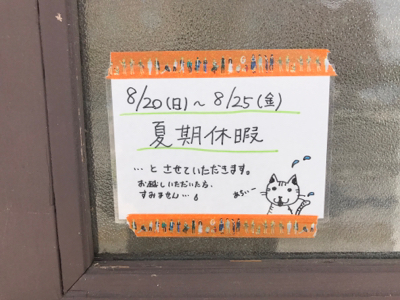 8/20(日)~8/25(金)
夏期休暇
…とさせていただきます。
お越しいただいたら、
すみません…
あちぃー